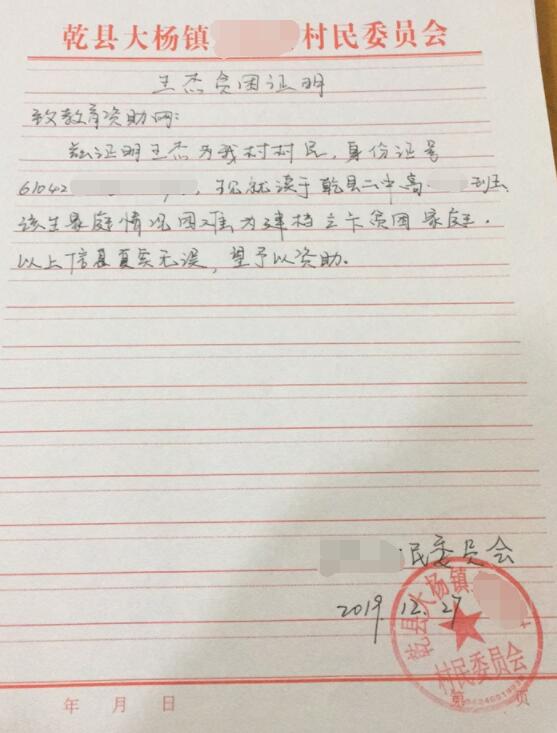 乾县大杨镇 村民委员会
王杰贫困证明
致教育资助网:
兹证明王杰为我村村民,身份证号
61042 ,现就读于乾县二中高 班
该生家庭情况困难为建档立卡贫困家庭.
以上信息真实无误,望予以资助.
民委员会
2019.12.27
乾县大杨镇
村民委员会
年 月 日 第 页